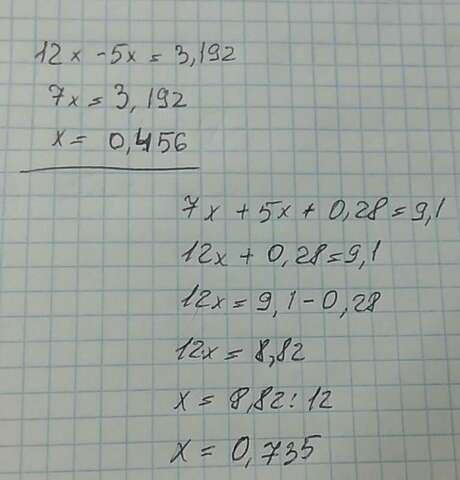 12x - 5x = 3,192
7x = 3,192
x = 0,456
7x + 5x + 0,28 = 9,1
12x + 0,28 = 9,1
12x = 9,1 - 0,28
12x = 8,82
x = 8,82 : 12
x = 0,735